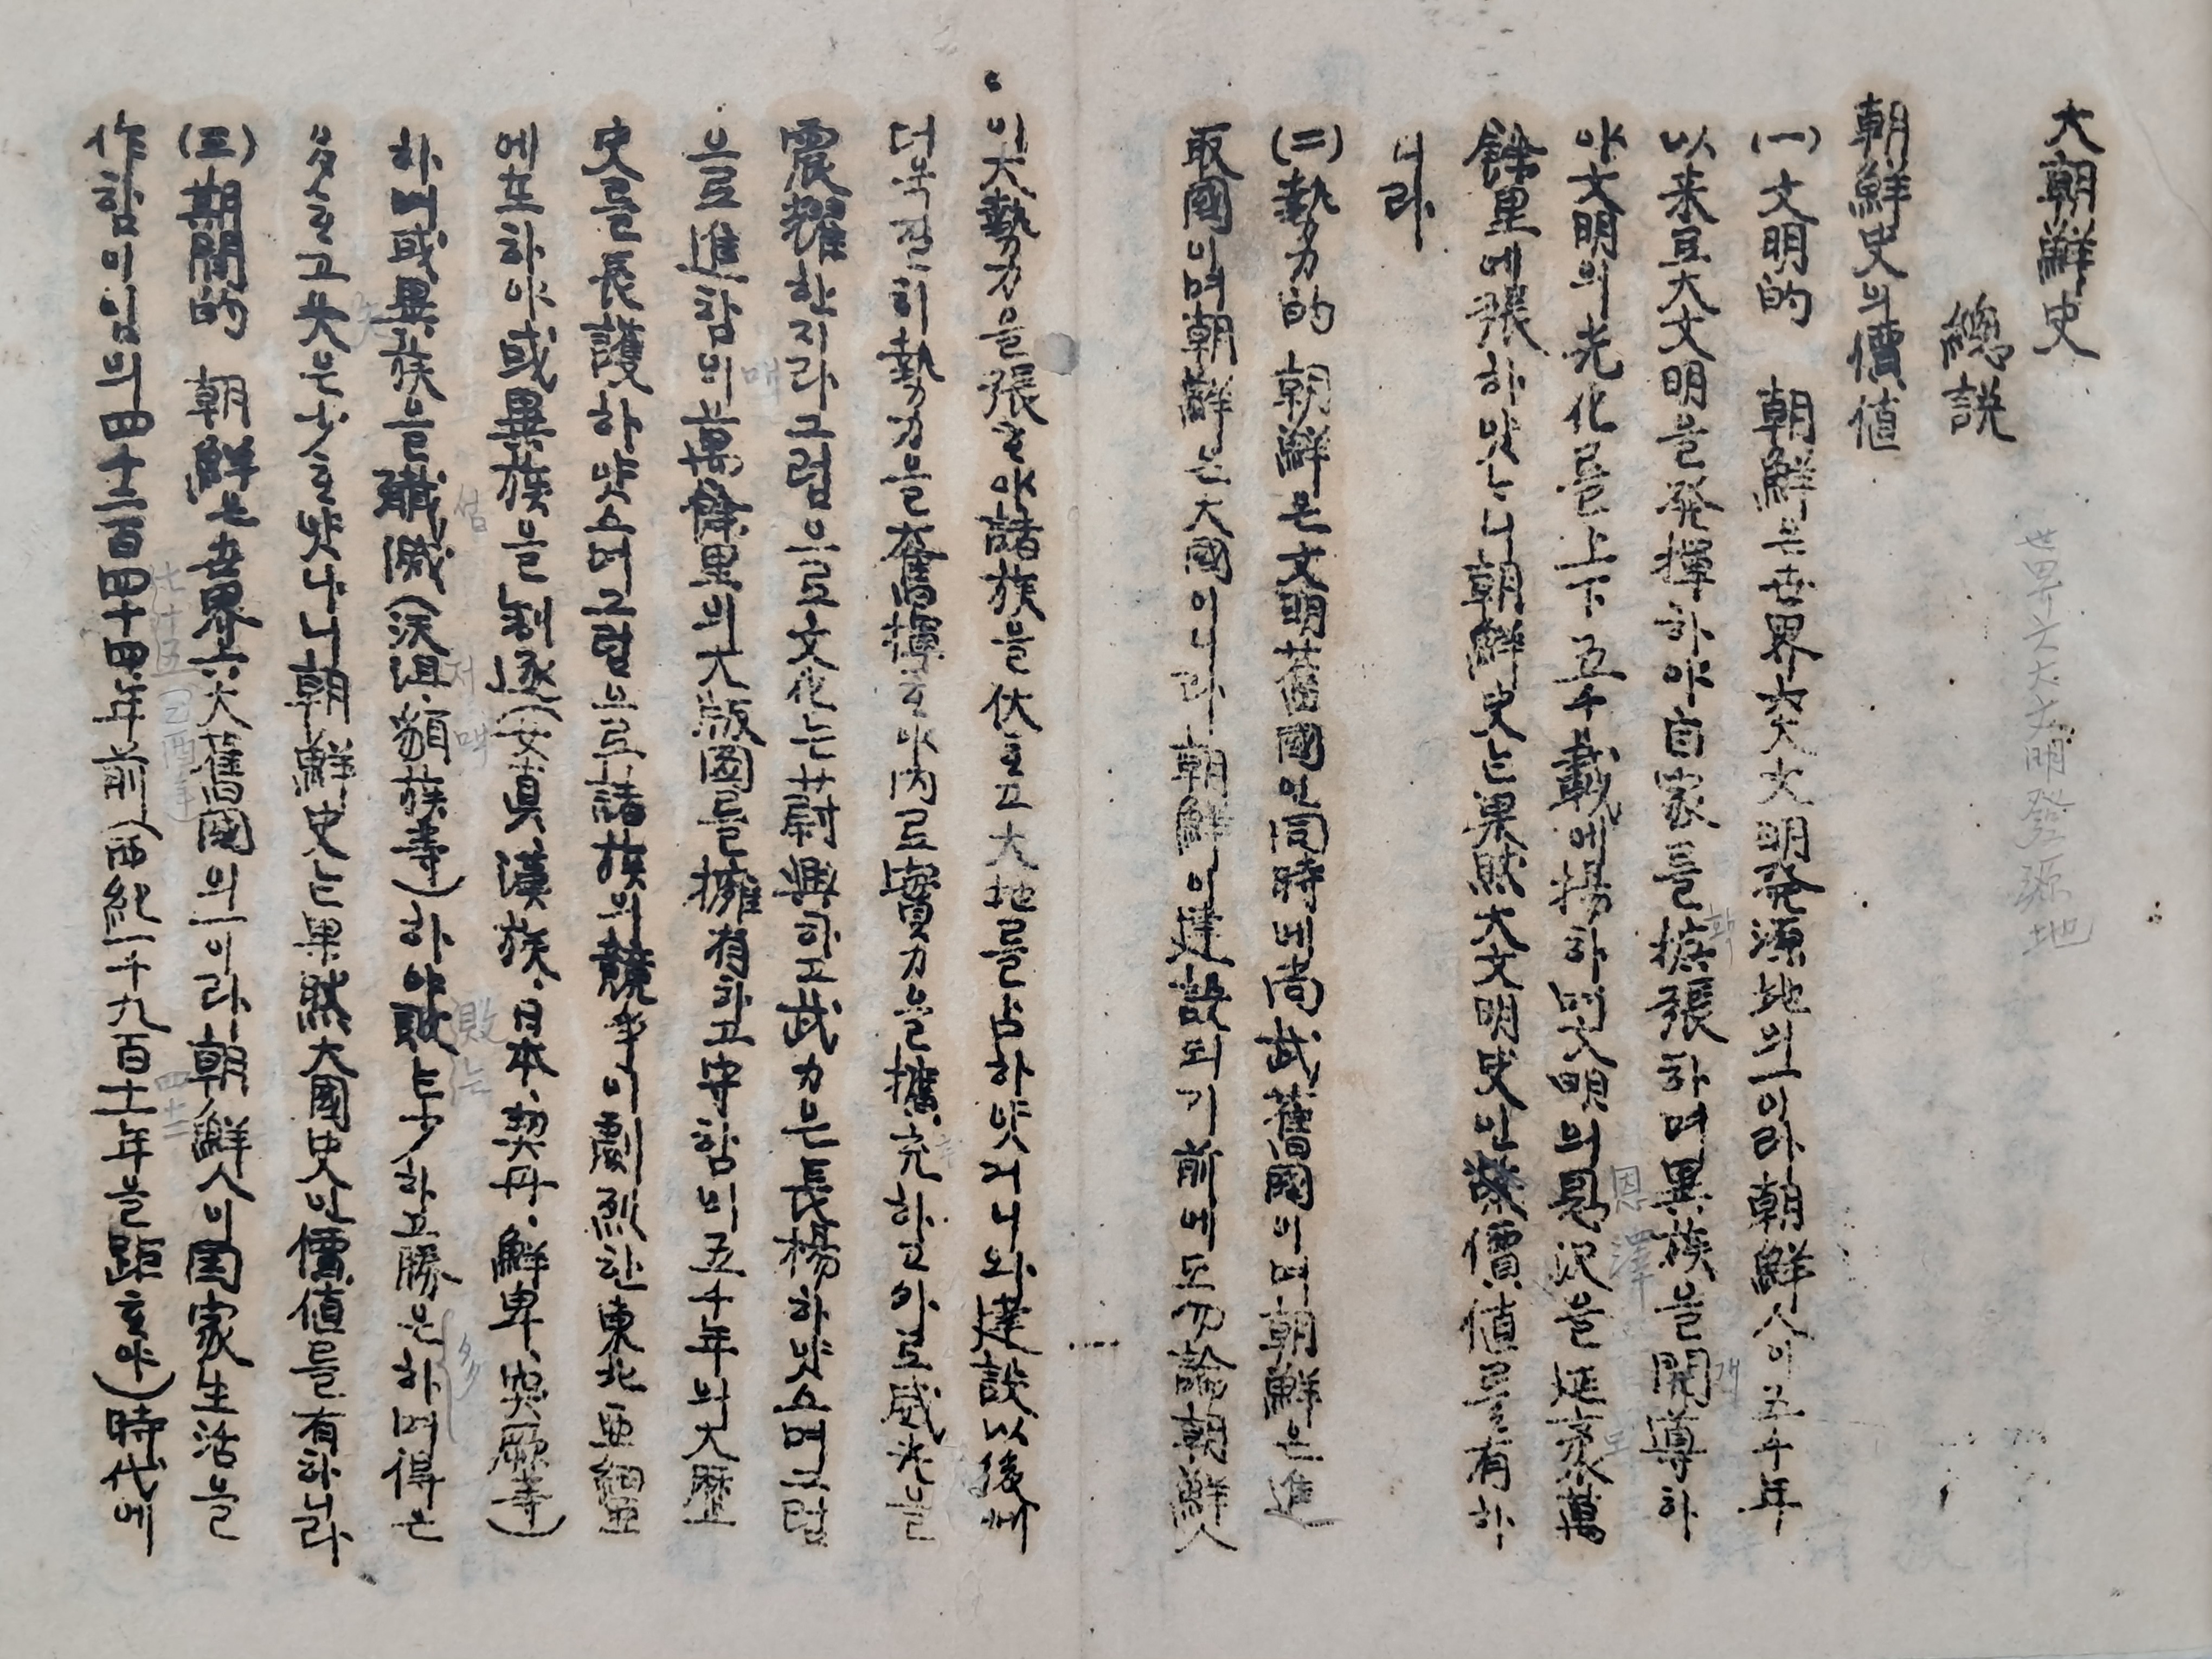 大朝鮮史
總說
朝鮮史의價値
(一)文明的 朝鮮은世界六大文明発源地의一이라朝鮮人이五千年
以来로大文明을発揮하야自家를擴張하며異族을開導하
야文明의光化를上下五千載에揚하며文明의恩沢을延袤萬
餘里에張하얏느니朝鮮史는果然大文明史인價値를有하
니라
(二)勢力的 朝鮮은文明舊國인同時에尙武舊國이며朝鮮은進
取國이며朝鮮은大國이니라朝鮮이建設되기前에도勿論朝鮮人
이大勢力을張하야諸族을伏하고大地를占하얏거니와建設以後에
더욱김히勢力을奮揮하야內로實力을擴充하고外로威光을
震耀하지라그럼으로文化는蔚興하고武力은長揚하얏스며그럼
으로進함의萬餘里의大版圖를擁有하고守함의五千年의大歷
史를長護하얏스며그럼으로諸族의競爭이劇烈한東北亜細亜
에立하야或異族을制逐(女真、漢族、日本、契丹、鮮卑、突厥等)
하며或異族을殲滅(沃沮、貊族等)하야敗는少하고勝은하며得은
多하고失은少하얏나니朝鮮史는果然大國史인價値를有하니라
(三)期間的 朝鮮은世界上六大舊國의一이라朝鮮人이国家生活을
作함이임의四千二百四十四年前(西紀一千九百十一年을距하야)時代에
世界六大文明發源地
恩澤
敗는
多
己酉年